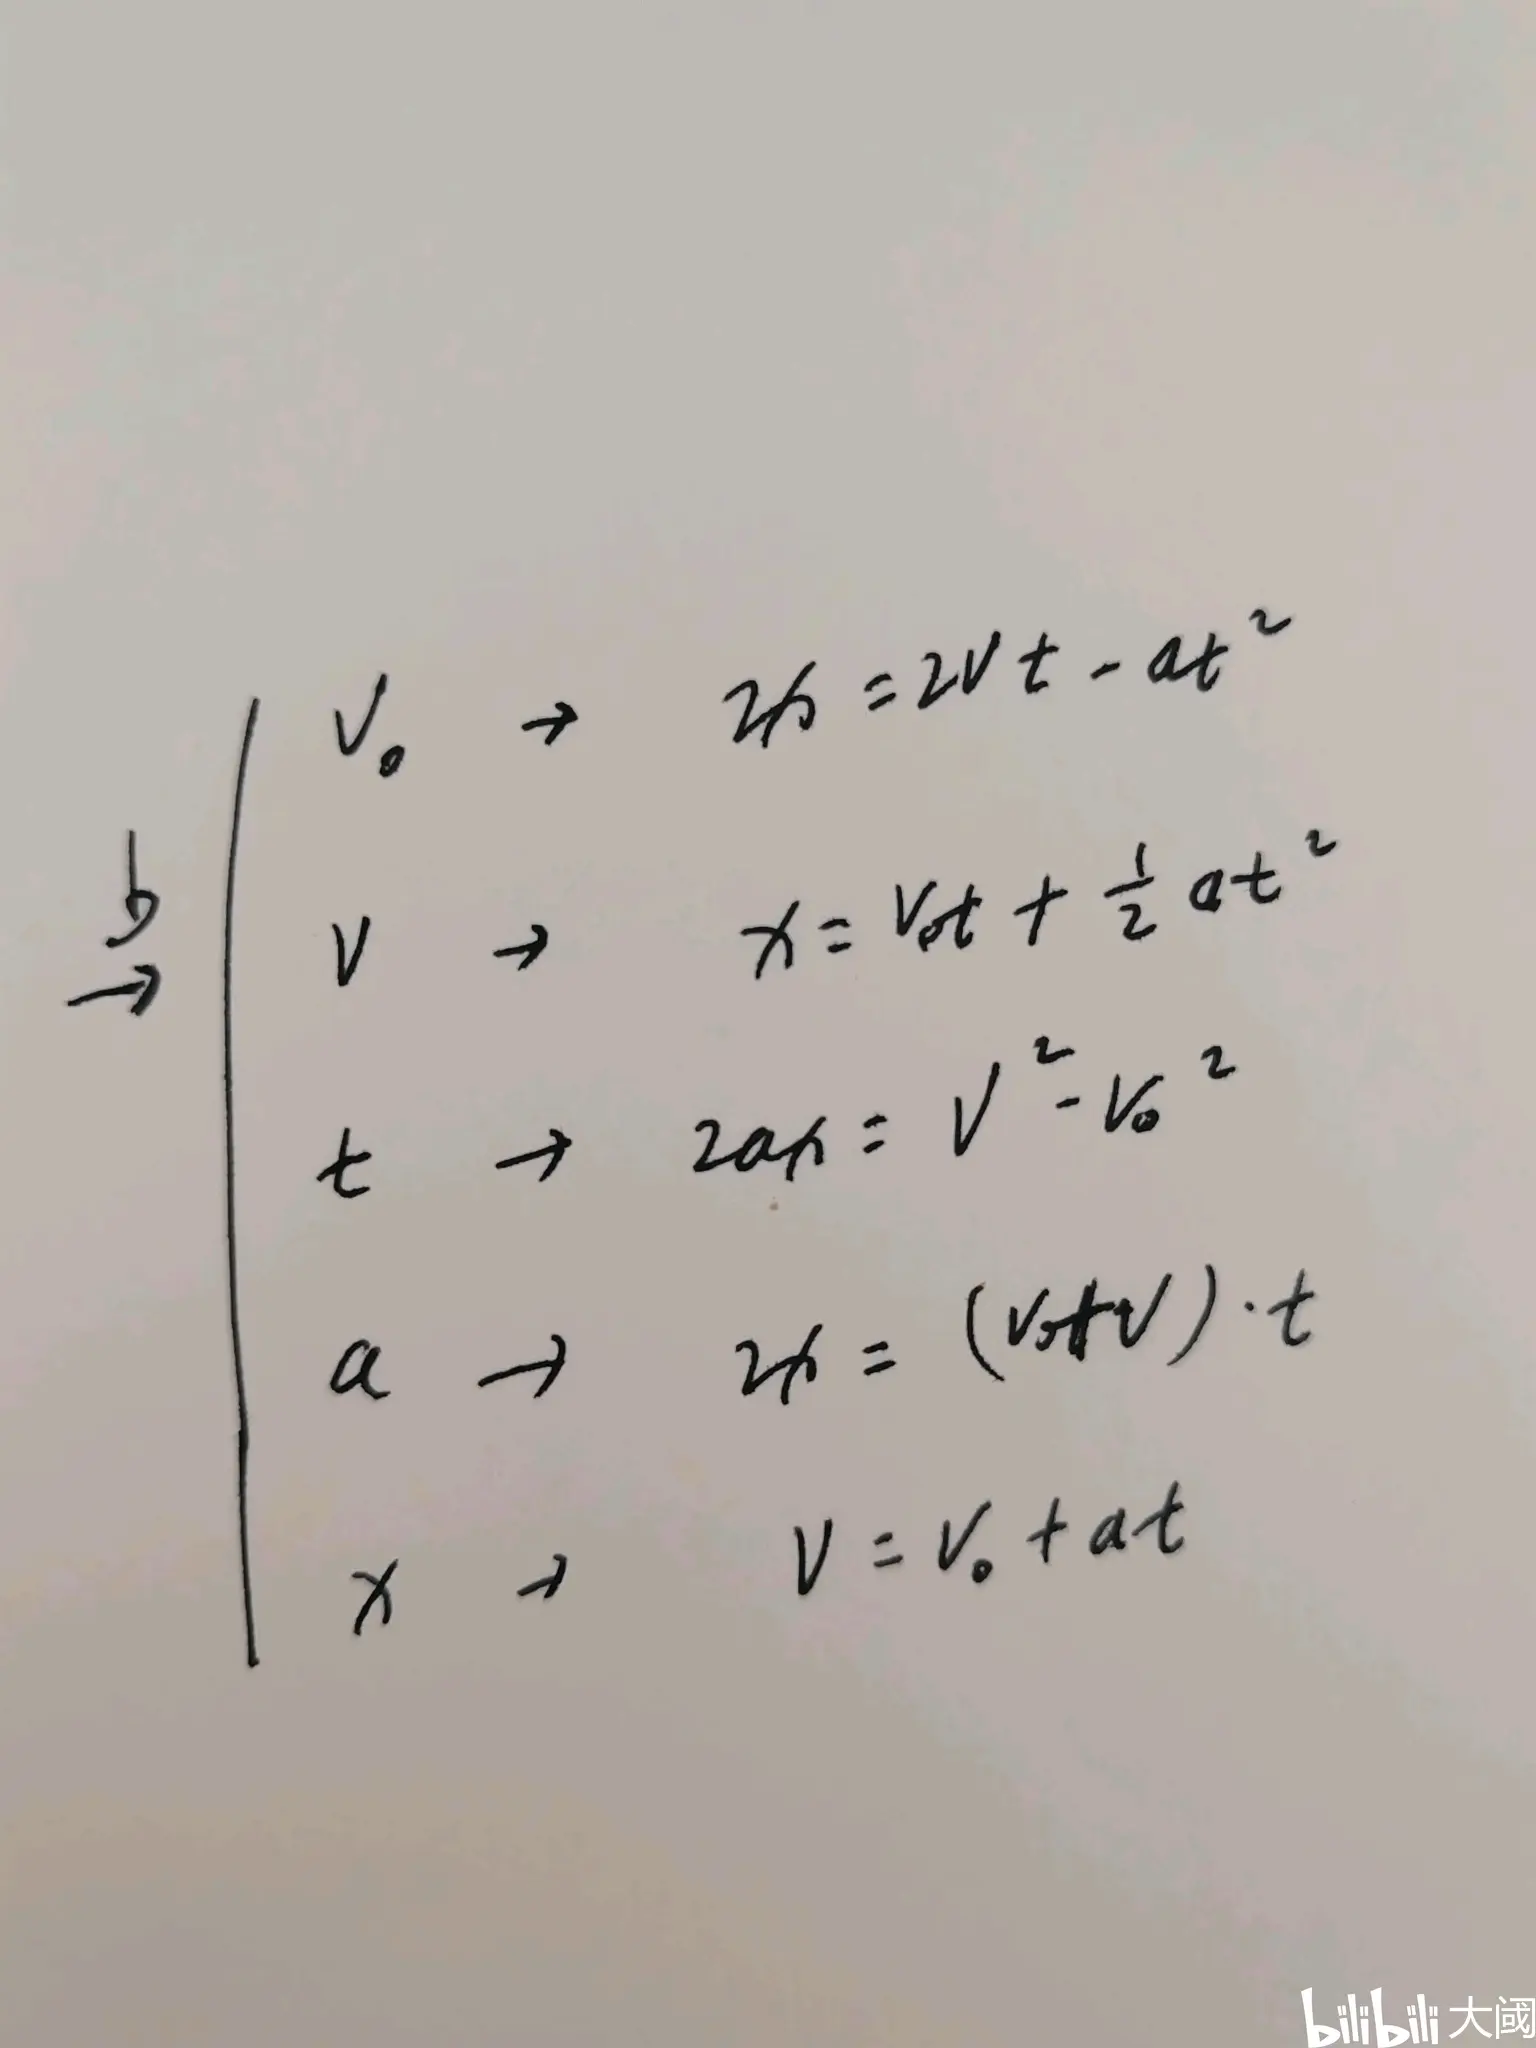 V₀ → 2x = 2Vt - at²
V → x = V₀t + ½ at²
t → 2ax = V² - V₀²
a → 2x = (V₀+V)·t
x → V = V₀ + at
→
bilibili 大阈